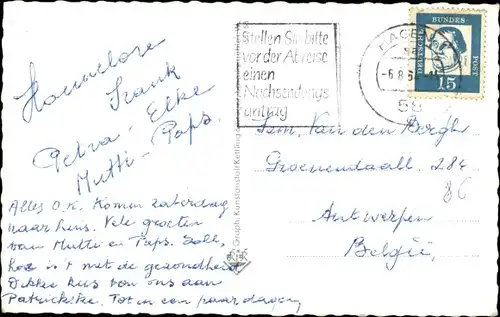 Hannelore
Frank
Petra - Elke
Mutti - Paps.
Alles O.K. Komen zaterdag
naar huis. Vele groeten
van Mutti en Paps.
hoe is't met de gezondheid
Dikke kus von ons aan
Patrickske. Tot in een paar dagen,
Stellen Sie bitte
vor der Abreise
einen
Nachsendungs
antrag
HAGEN
-6.8.6
58
DEUTSCHE
BUNDES
POST
15
Fam. Van den Bergh
Groenendaall. 284
Antwerpen
België,